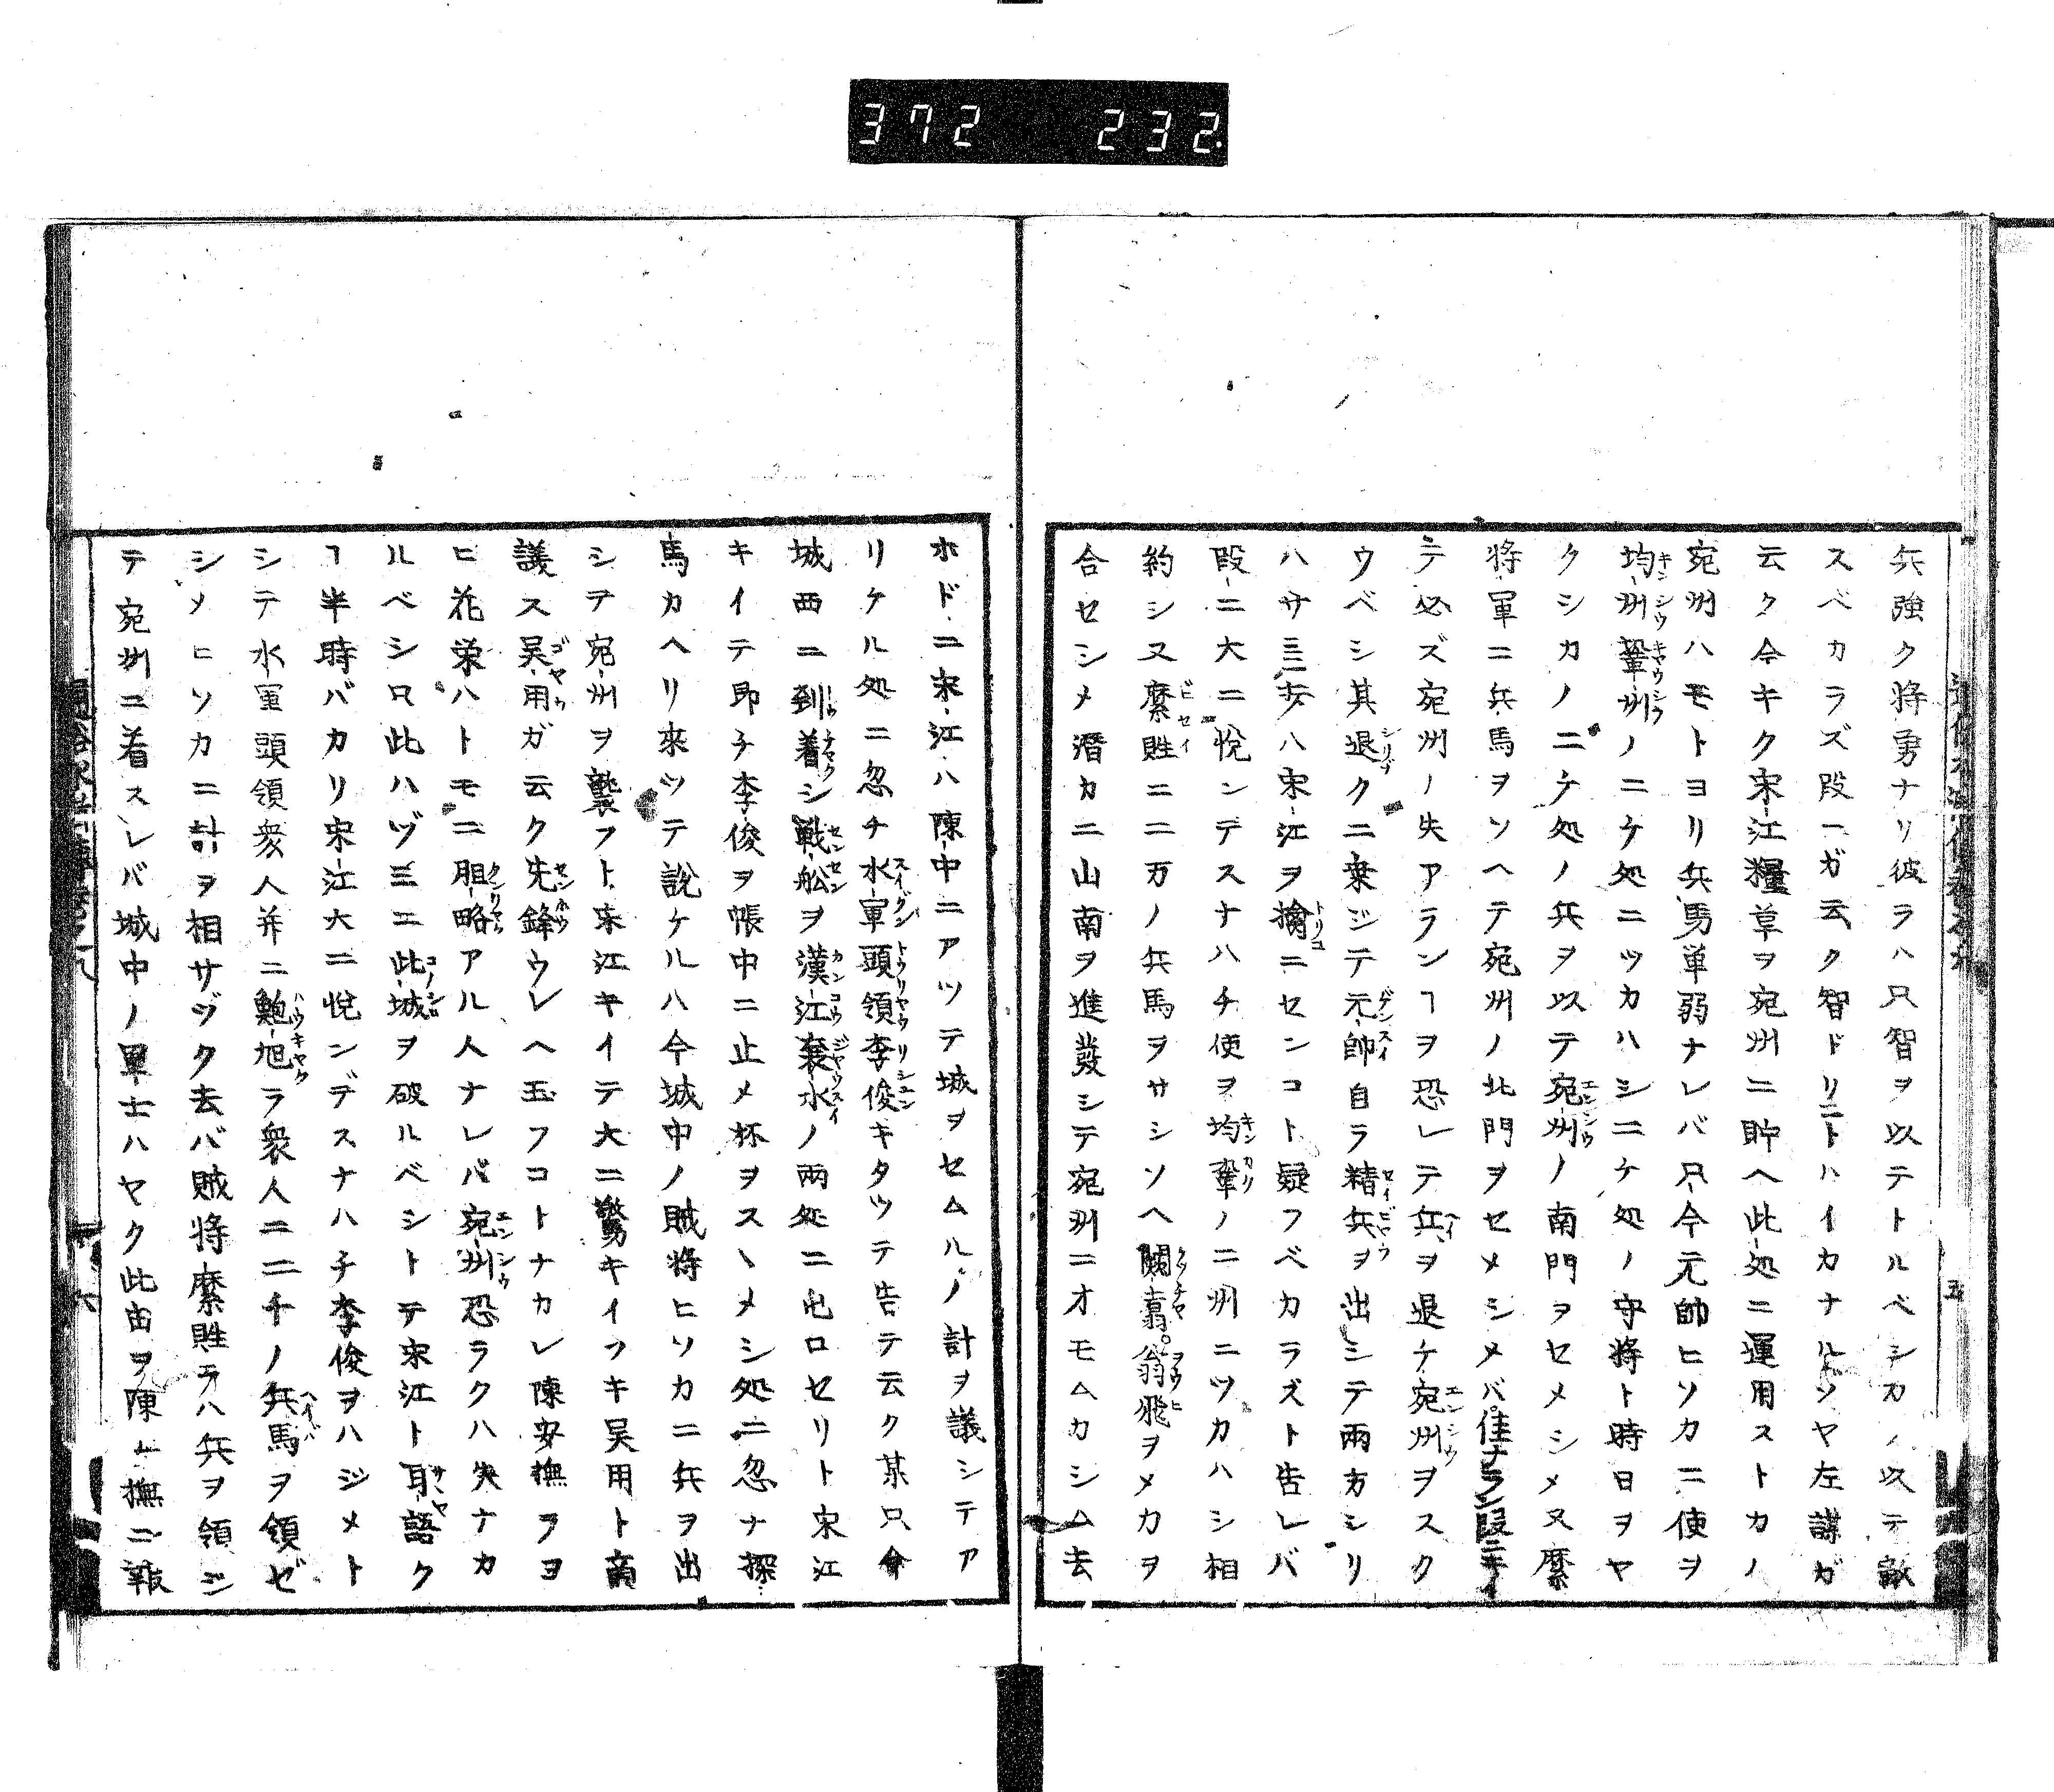 372 232
兵強ク将勇ナリ彼ラハ只智ヲ以テトルベシカノ以テ敵
スベカラズ段一ガ云ク智ドリニトハイカナルゾヤ左謀ガ
云ク今キク宋江糧草ヲ宛州ニ貯ヘ此処ニ運用ストカノ
宛州ハモトヨリ兵馬単弱ナレバ只今元帥ヒソカニ使ヲ
均州鞏州ノ二ケ処ニツカハシ二ケ処ノ守将ト時日ヲヤ
クシカノ二ケ処ノ兵ヲ以テ宛州ノ南門ヲセメシメ又縻
将軍ニ兵馬ヲソヘテ宛州ノ北門ヲセメシメバ佳ナラン段ニキイ
テ必ズ宛州ノ失アランヿヲ恐レテ兵ヲ退ケ宛州ヲスク
ウベシ其退クニ乗ジテ元帥自ラ精兵ヲ出シテ兩方シリ
ハサミ歩ハ宋江ヲ擒ニセンコト疑フベカラズト告レバ
段二大ニ悦ンデスナハチ使ヲ均鞏ノ二州ニツカハシ相
約シ又縻貹ニ二万ノ兵馬ヲサシソヘ闕翥。翁飛ヲメカヲ
合セシメ潛カニ山南ヲ進發シテ宛州ニオモムカシム去
ホドニ宋江ハ陳中ニアツテ城ヲセムルノ計ヲ議シテア
リケル処ニ忽チ水軍頭領李俊キタツテ告テ云ク某只今
城西ニ到着シ戦舩ヲ漢江襄水ノ兩処ニ屯ロセリト宋江
キイテ即チ李俊ヲ帳中ニ止メ杯ヲスヽメシ処ニ忽ナ探
馬カヘリ來ツテ說ケルハ今城中ノ賊将ヒソカニ兵ヲ出
シテ宛州ヲ襲フト宋江キイテ大ニ驚キイフキ吴用ト商
議ス吴用ガ云ク先鋒ウレヘ玉フコトナカレ陳安撫ヲヨ
ヒ花栄ハトモニ胆略アル人ナレバ宛州恐ラクハ失ナカ
ルベシ只此ハヅ三ニ此城ヲ破ルベシトテ宋江ト耳語ク
ヿ半時バカリ宋江大ニ悦ンデスナハチ李俊ヲハジメト
シテ水軍頭領衆人并ニ鮑旭ラ衆人ニ二千ノ兵馬ヲ領ゼ
シメヒソカニ計ヲ相サヅク去バ賊将縻貹ラハ兵ヲ領シ
テ宛州ニ着スレバ城中ノ軍士ハヤク此由ヲ陳安撫ニ報